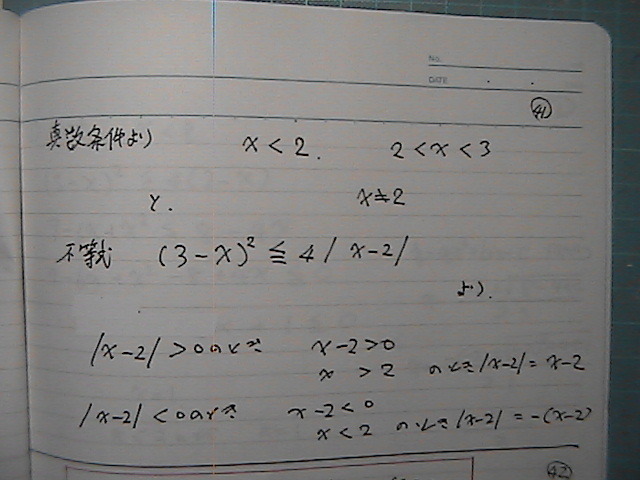 No.
DATE
㊶
真数条件より x < 2. 2 < x < 3
と. x ≠ 2
不等式 (3-x)² ≦ 4|x-2|
より.
|x-2| > 0 のとき x-2 > 0
x > 2 のとき |x-2| = x-2
|x-2| < 0 のとき x-2 < 0
x < 2 のとき |x-2| = -(x-2)
㊷